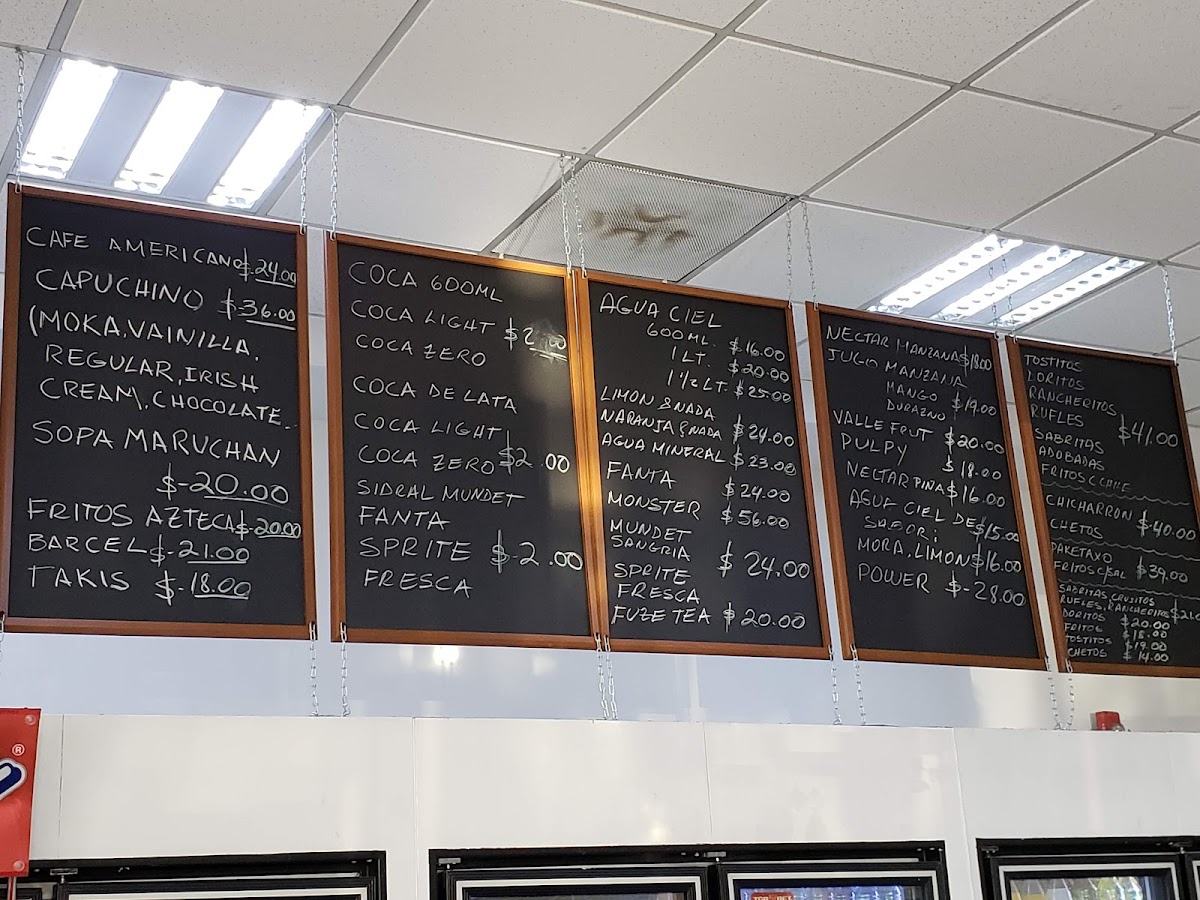 CAFE AMERICANO $.24.00
CAPUCHINO $.36.00
(MOKA, VAINILLA.
REGULAR, IRISH
CREAM, CHOCOLATE..
SOPA MARUCHAN
$-20.00
FRITOS AZTECA $-20.00
BARCEL $-21.00
TAKIS $-18.00
COCA 600ML
COCA LIGHT
COCA ZERO
COCA DE LATA
COCA LIGHT
COCA ZERO $2 .00
SIDRAL MUNDET
FANTA
SPRITE $-2.00
FRESCA
AGUA CIEL
600ML. $.16.00
1 LT. $20.00
1 1/2 LT $25.00
LIMON & NADA
NARANJA & NADA $24.00
AGUA MINERAL $23.00
FANTA $24.00
MONSTER $56.00
MUNDET
SANGRIA $24.00
SPRITE
FRESCA
FUZE TEA $20.00
NECTAR MANZANA $18.00
JUGO MANZANA
MANGO $19.00
DURAZNO
VALLE FRUT $20.00
PULPY $18.00
NECTAR PIÑA $16.00
AGUA CIEL DE $15.00
SABOR:
MORA. LIMON $16.00
POWER $-28.00
TOSTITOS
DORITOS
RANCHERITOS
RUFLES $41.00
SABRITAS
ADOBADAS
FRITOS C CHILE
CHICHARRON $40.00
CHETOS
PAKETAXO
FRITOS C/SAL $39.00
SABRITAS, CRUJITOS
RUFLES, RANCHERITOS
DORITOS $20.00
FRITOS $18.00
TOSTITOS $19.00
CHETOS $14.00